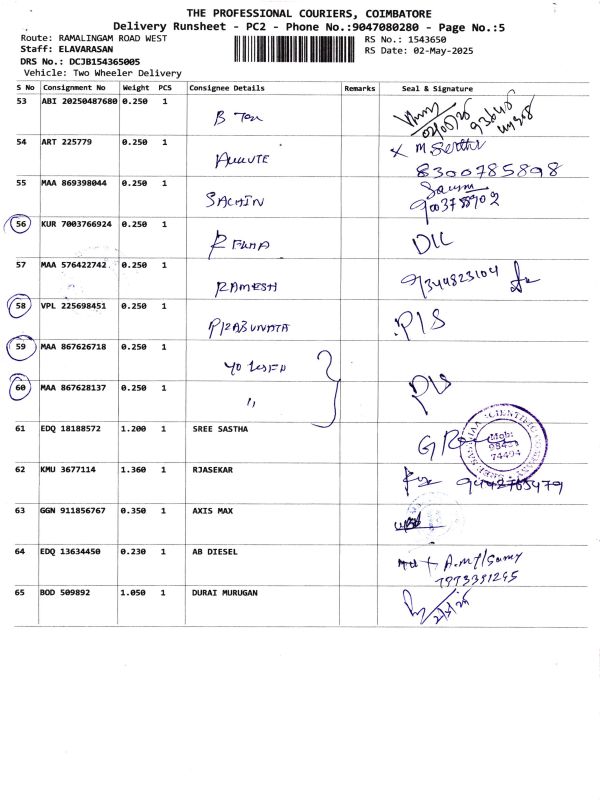 THE PROFESSIONAL COURIERS, COIMBATORE
Delivery Runsheet - PC2 - Phone No.:9047080280 - Page No.:5
Route: RAMALINGAM ROAD WEST RS No.: 1543650
Staff: ELAVARASAN RS Date: 02-May-2025
DRS No.: DCJB154365005
Vehicle: Two Wheeler Delivery
S No Consignment No Weight PCS Consignee Details Remarks Seal & Signature
53 ABI 20250487680 0.250 1
54 ART 225779 0.250 1
8300785898
55 MAA 869398044 0.250 1 SACHIN
56 KUR 7003766924 0.250 1 DIL
57 MAA 576422742 0.250 1 RAMESH 9344823104
58 VPL 225698451 0.250 1 P/S
59 MAA 867626718 0.250 1
60 MAA 867628137 0.250 1 " P/S
61 EDQ 18188572 1.200 1 SREE SASTHA
Mob:
74404
62 KMU 3677114 1.360 1 RJASEKAR 9442765479
63 GGN 911856767 0.350 1 AXIS MAX
64 EDQ 13634450 0.230 1 AB DIESEL
65 BOD 509892 1.050 1 DURAI MURUGAN